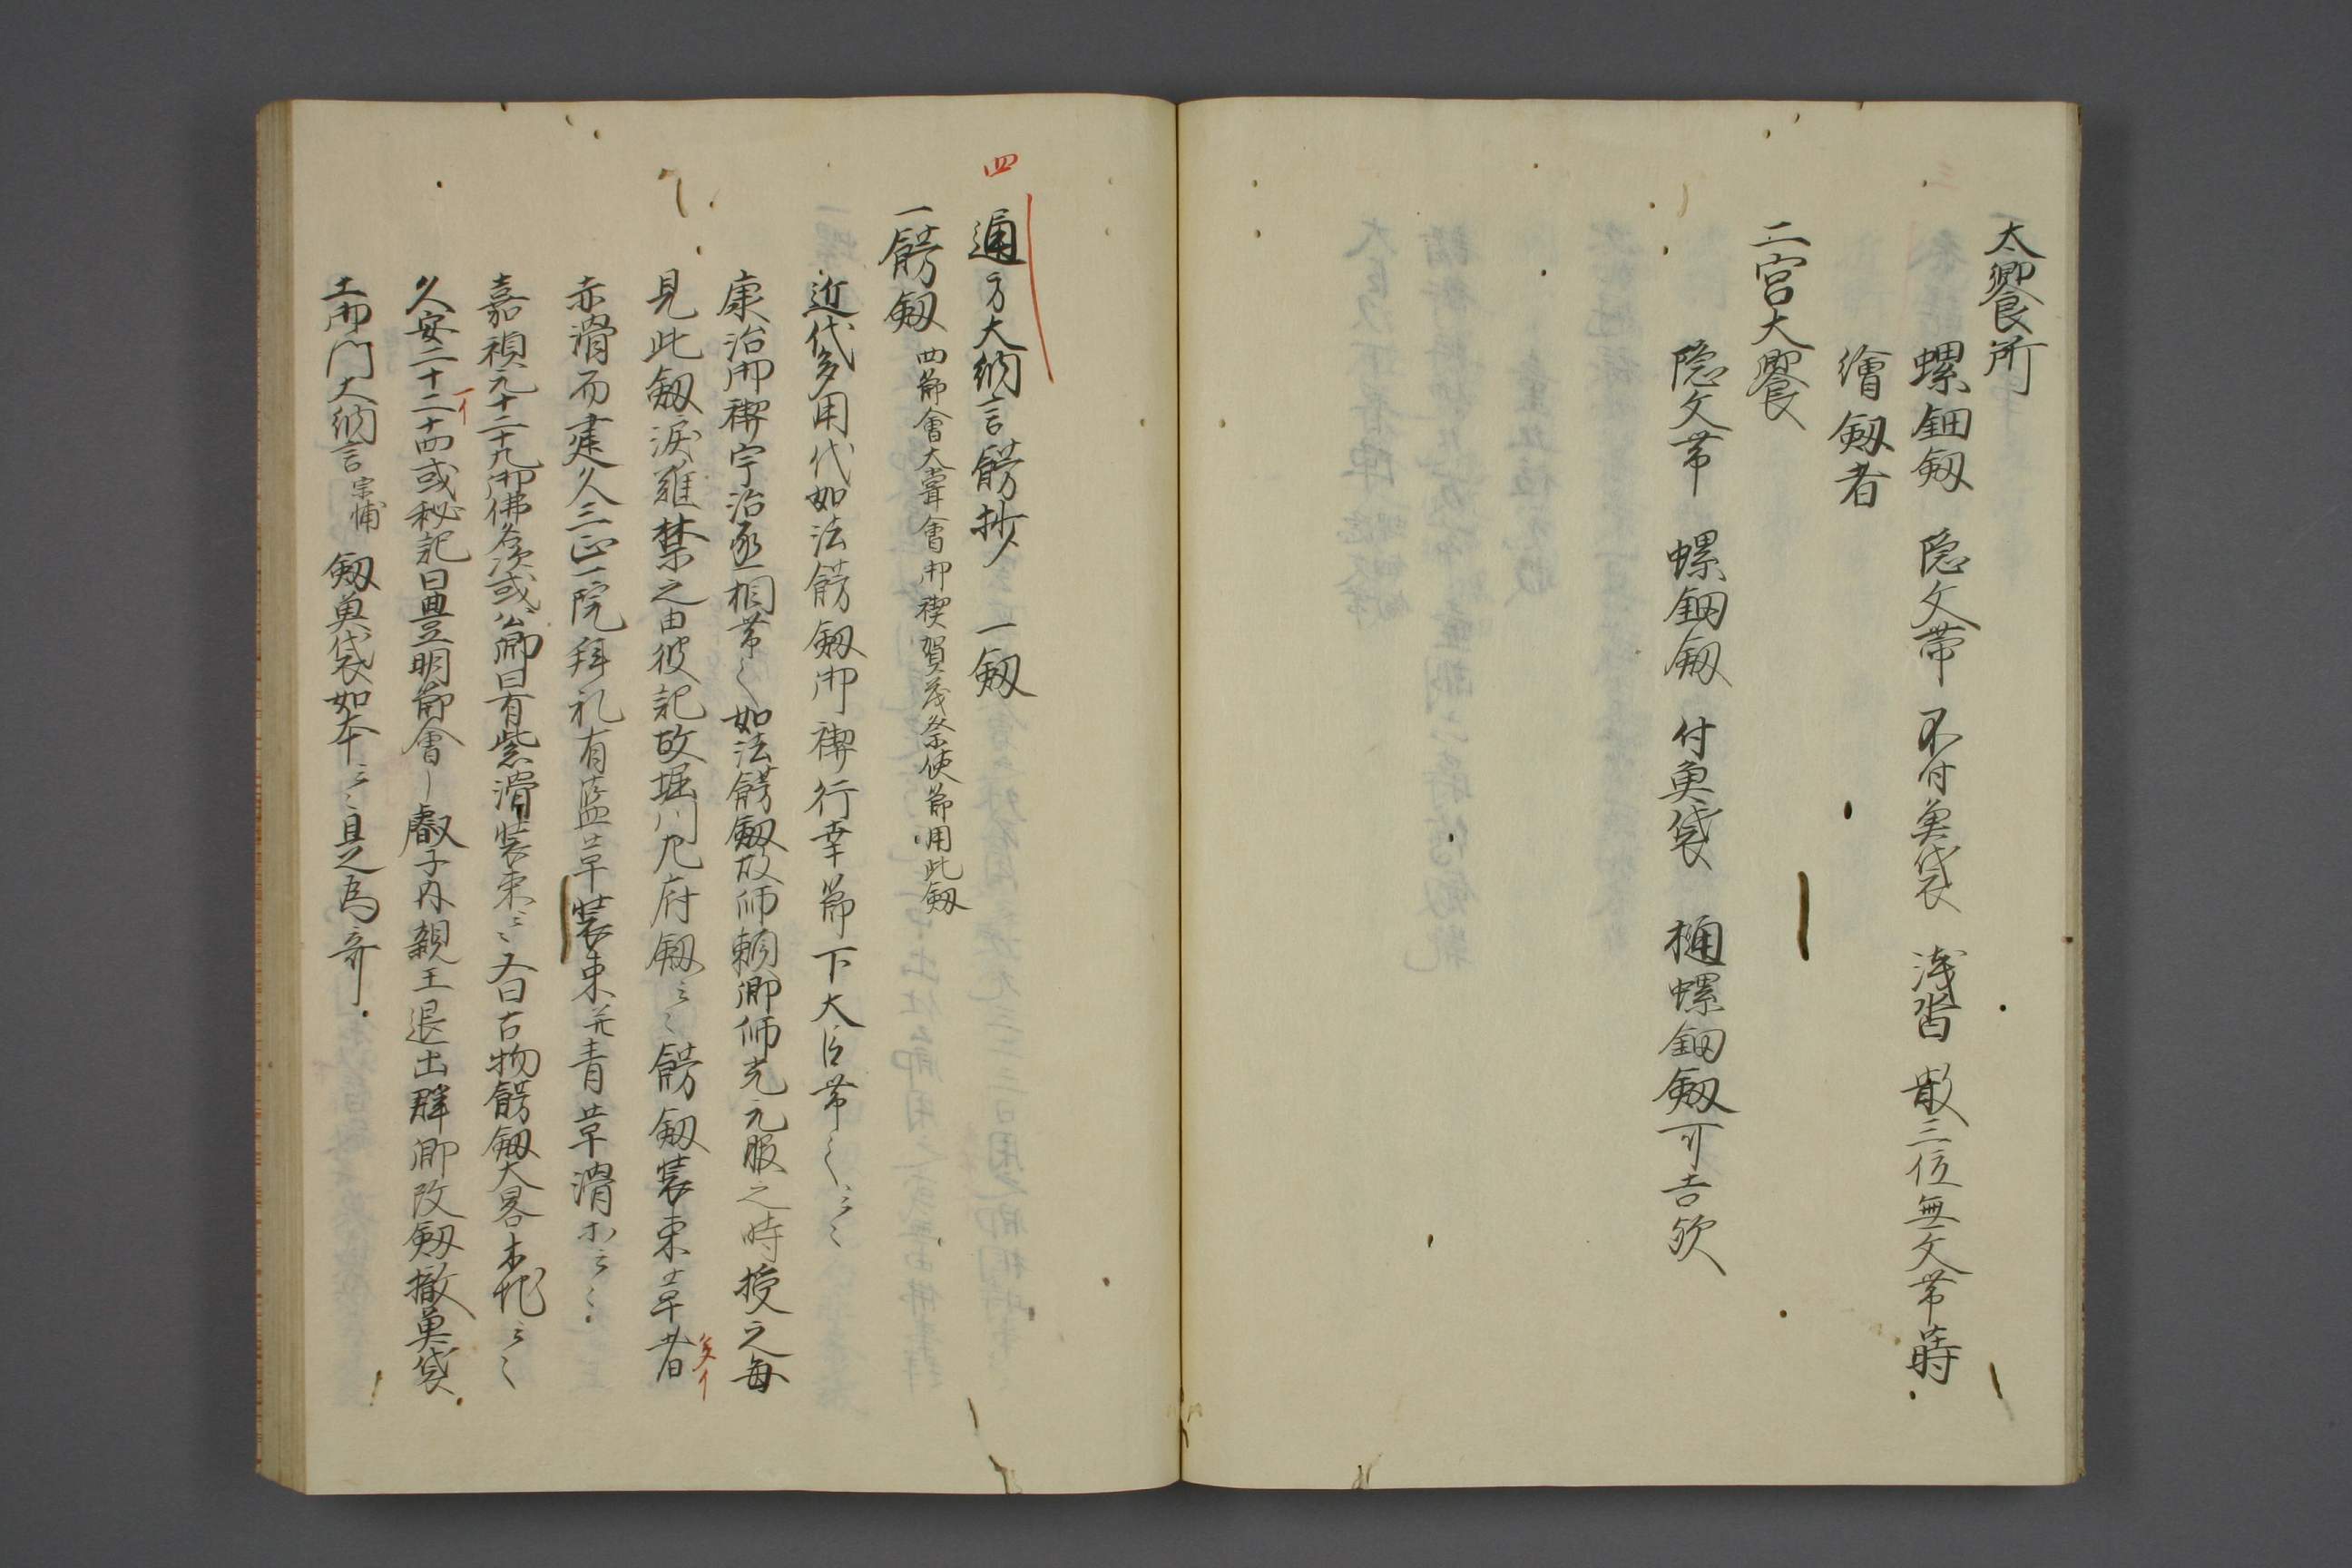 大饗所
螺鈿釼　隠文帯　不付魚袋　浅沓　散三位無文帯蒔
繪釼者
二宮大饗
隠文帯　螺鈿釼　付魚袋　樋螺鈿釼可吉歟
四
通方大納言餝抄　一釼
一餝釼　四節會大甞會御禊賀茂祭使節用此釼
近代多用代如法餝釼御禊行幸節下大臣帯之云々
康治御禊宇治丞相帯之如法餝釼故師頼卿師光元服之時授之毎
見此釼涙難禁之由彼記故堀川左府釼云々餝釼装束革者
赤滑而建久三正一院拜礼有藍革装束并青革滑ホ云々
嘉禎元十二十九御佛名次或公卿曰有紫滑装束云々又曰古物餝釼大畧赤地云々
久安二十二十四或秘記曰豊明節會〡叡子内親王退出群卿改釼撤魚袋
一イ
土御門大納言宗輔　釼魚袋如本云々具之為奇